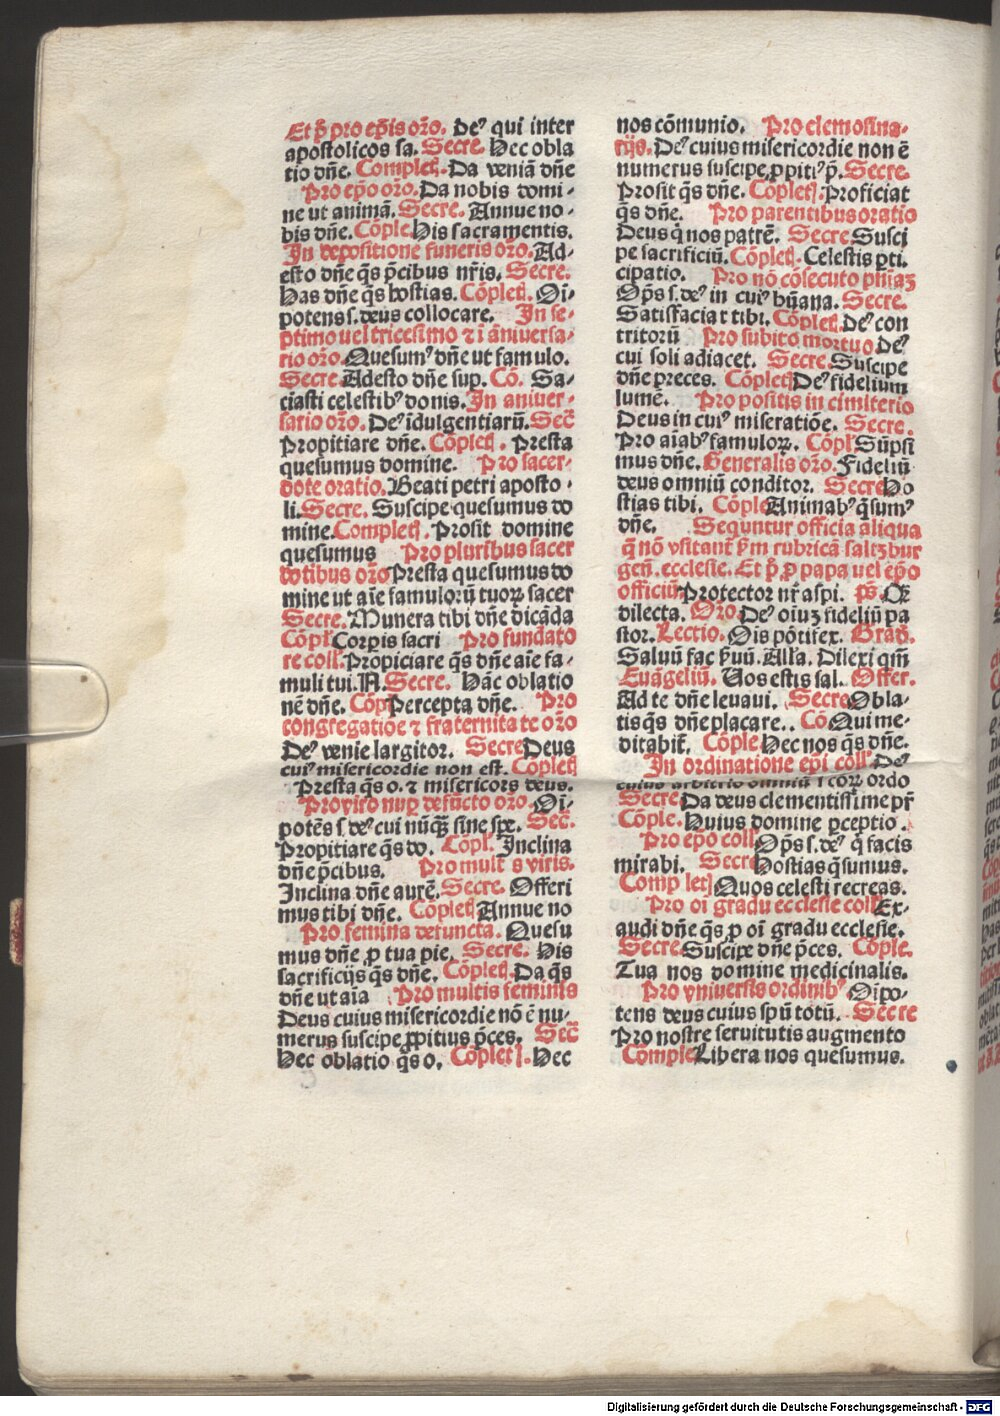 Et p̃ pro ep̃is oro. Deꝰ qui inter
apostolicos sa. Secre. Hec obla
tio dñe. Completꝭ. Da veniã dñe
Pro ep̃o oro. Da nobis domi⸗
ne ut animã. Secre. Annue no⸗
bis dñe. Cõple. His sacramentis.
In depositione funeris oro. Ad⸗
esto dñe q̃s p̃cibus nr̃is. Secre.
Has dñe q̃s hostias. Cõpletꝭ. Oĩ⸗
potens s. deus collocare. In se⸗
ptimo uel tricesimo ⁊ ĩ ãniuersa⸗
rio oro. Quesumꝰ dñe ut famulo.
Secre. Adesto dñe sup. Cõ. Sa⸗
ciasti celestibꝰ donis. In aniuer⸗
sario oro. Deꝰ ĩdulgentiarũ. Sec̃
Propitiare dñe. Cõpletꝭ. Presta
quesumus domine. Pro sacer⸗
dote oratio. Beati petri aposto⸗
li. Secre. Suscipe quesumus do
mine. Completꝭ. Prosit domine
quesumus Pro pluribus sacer
dotibus oro Presta quesumus do
mine ut aĩe famulorũ tuoꝝ sacer
Secre. Munera tibi dñe dicãda
Cõpl̃ Corpis sacri Pro fundato
re coll. Propiciare q̃s dñe aĩe fa⸗
muli tui. N. Secre. Hãc oblatio
nẽ dñe. Cõp̃ Percepta dñe. Pro
congregatiõe ⁊ fraternitate oro
Deꝰ venie largitor. Secre Deus
cuiꝰ misericordie non est. Cõpletꝭ
Presta q̃s o. ⁊ misericors deus.
Pro viro nuꝑ defũcto oro. Oĩ⸗
potẽs s. deꝰ cui nũq̃ꝫ sine spe. Sec̃.
Propitiare q̃s do. Cõpl̃. Inclina
dñe p̃cibus. Pro multꝭs viris.
Inclina dñe aurẽ. Secre. Offeri
mus tibi dñe. Cõpletꝭ Annue no
Pro femina defuncta. Quesu
mus dñe ꝓ tua pie. Secre. His
sacrificijs q̃s dñe. Cõpletꝭ. Da q̃s
dñe ut aĩa Pro multis feminis
Deus cuius misericordie nõ ẽ nu⸗
merus suscipe ꝓpitius p̃ces. Sec̃
Hec oblatio q̃s o. Cõpletꝭ. Hec
nos cõmunio. Pro elemosina⸗
rijs. Deꝰ cuius misericordie non ẽ
numerus suscipe ꝓpitiꝰ p̃. Secre.
Prosit q̃s dñe. Cõpletꝭ. Proficiat
q̃s dñe. Pro parentibus oratio
Deus q̃ nos patrẽ. Secre Susci
pe sacrificiũ. Cõpletꝭ. Celestis ꝑti.
cipatio. Pro nõ cõsecuto pñiaꝫ
Op̃s s. deꝰ in cuiꝰ hũana. Secre.
Satisfaciat tibi. Cõpletꝭ. Deꝰ con
tritorũ Pro subito mortuo Deꝰ
cui soli adiacet. Secre. Suscipe
dñe preces. Cõpletꝭ Deꝰ fidelium
lumẽ. Pro positis in cimiterio
Deus in cuiꝰ miseratiõe. Secre.
Pro aĩabꝰ famuloꝝ. Cõpl̃ Sũpsi
mus dñe. Generalis oro. Fideliũ
deus omniũ conditor. Secre Ho
stias tibi. Cõple Animabꝰ q̃sumꝰ
dñe. Sequntur officia aliqua
q̃ nõ vsitant̃ s̃m rubricã saltzbur
geñ. ecclesie. Et p̃ ꝓ papa uel ep̃o
officiũ Protector nr̃ aspi. ps̃. Q̃
dilecta. Oro. Deꝰ oĩuꝫ fideliũ pa
stor. Lectio. Oĩs põtifex. Grad̃.
Saluũ fac ẜuũ. Alla. Dilexi qm̃
Euãgeliũ. Uos estis sal. Offer.
Ad te dñe leuaui. Secre Obla⸗
tis q̃s dñe placare.. Cõ Qui me⸗
ditabit̃. Cõple Hec nos q̃s dñe.
In ordinatione ep̃i coll Deꝰ
cuius arbitrio omniũ ſ coꝝ ordo
Secre Da deus clementissime pr̃
Cõple. Huius domine ꝑceptio.
Pro ep̃o coll Op̃s s. deꝰ q̃ facis
mirabi. Secre Hostias q̃sumus.
Completꝭ Quos celesti recreas.
Pro oĩ gradu ecclesie coll Ex⸗
audi dñe q̃s ꝓ oĩ gradu ecclesie.
Secre. Suscipe dñe p̃ces. Cõple.
Tua nos domine medicinalis.
Pro vniuersis ordinibꝰ Oĩpo⸗
tens deus cuius spũ totũ. Secre
Pro nostre seruitutis augmento
Comple Libera nos quesumus.
Digitalisierung gefördert durch die Deutsche Forschungsgemeinschaft - DFG